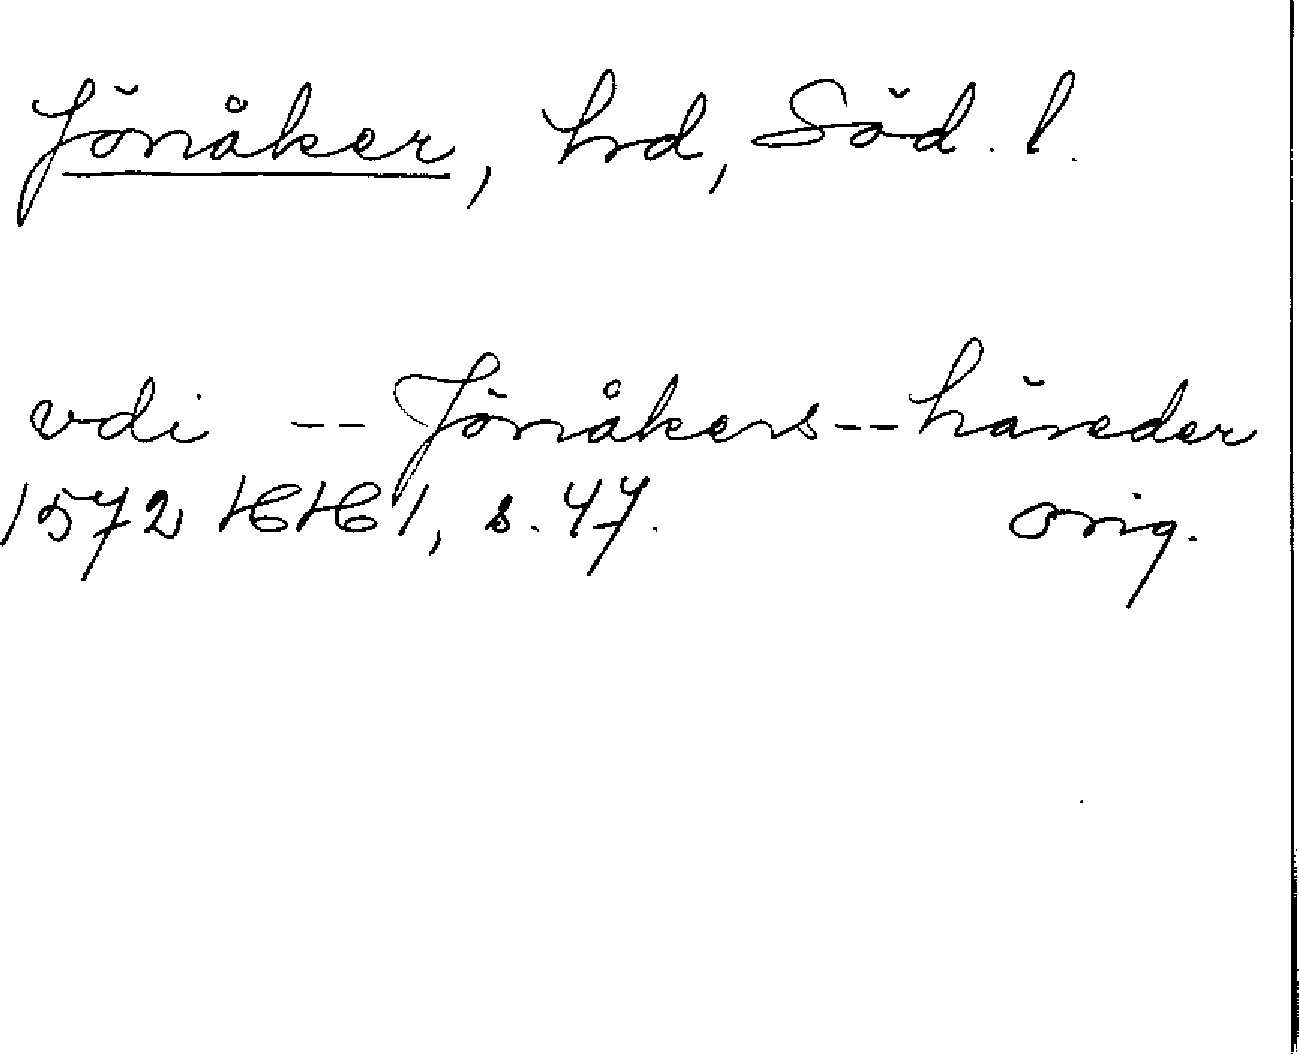 Jönåker, hd, Söd. l.
vdi -- Jönåkers -- häreder
1572 HH 1, s. 47. orig.